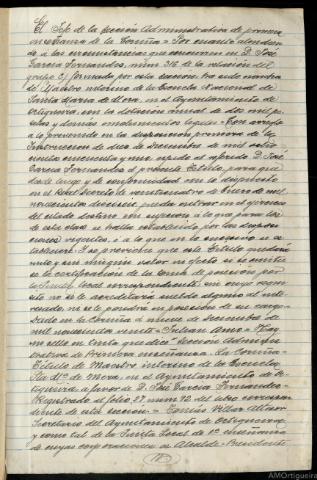 El Jefe de la Sección Administrativa de primera
enseñanza de la Coruña = Por cuanto atendien-
do á las circunstancias que concurren en D. José
García Fernandez, núm 316 de la relación del
grupo formado por esta sección, ha sido nombra-
do Maestro interino de la Escuela Nacional de
Santa María de Mera, en el Ayuntamiento de
Ortigueira con la dotación anual de dos mil pe-
setas y demás emolumentos legales = Con arreglo
á lo prevenido en la disposición primera de la
Instrucción de diez de Diciembre de mil ocho-
cientos cincuenta y uno expido al referido D. José
García Fernandez el presente Título para que
desde luego y de conformidad con lo dispuesto
en el Real Decreto de veinticuatro de Enero de mil
novecientos dieciseis, pueda entrar en el ejercicio
del citado destino con sujeción á lo que para los
de esta clase se halla establecido por las disposi-
ciones vigentes, y á lo que en lo sucesivo se es-
tableciere. Y se previene que este Título quedará
nulo y sin ningún valor ni efecto si se omitie-
se la certificación de la toma de posesión por
la Junta local correspondiente, sin cuyo requi-
sito no se le acreditará sueldo alguno al inte-
resado ni se le pondrá en posesión de su cargo =
Dado en la Coruña á nueve de Diciembre de
mil novecientos veinte = Julian Amo = Hay
un sello en tinta que dice: "Sección Adminis-
trativa de Primera enseñanza = La Coruña =
Título de Maestro interino de la Escuela
Sta. Mª de Mera, en el Ayuntamiento de Or-
tigueira á favor de D. José García Fernandez =
Registrado al folio 27 núm 92 del libro correspon-
diente de esta sección = Tomás Villar Altaver
Secretario del Ayuntamiento de Ortigueira
y como tal de la Junta Local de 1ª enseñanza
de cuya corporación es Alcalde-Presidente
AMOrtigueira